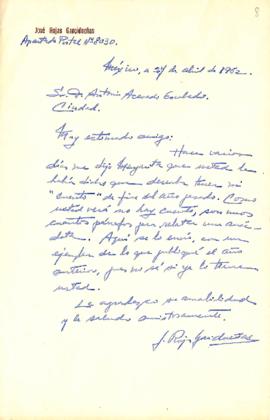 8
José Rojas Garcidueñas
Apartado Postal Nº 8030.
México, a 27 de abril de 1962
Sr. D. Antonio Acevedo Escobedo.
Ciudad.
Muy estimado amigo:
Hace varios
días me dijo Margarita que usted le
había dicho que deseaba tener mi
"cuento" de fin de año pasado. Como
usted verá no hay cuento, son unos
cuantos párrafos para relatar una anéc-
dota. Aquí se lo envío, con un
ejemplar de lo que publiqué el año
anterior, pues no sé si ya lo tenía
usted.
Le agradezco su amabilidad
y lo saludo amistosamente.
J. Rojas Garcidueñas